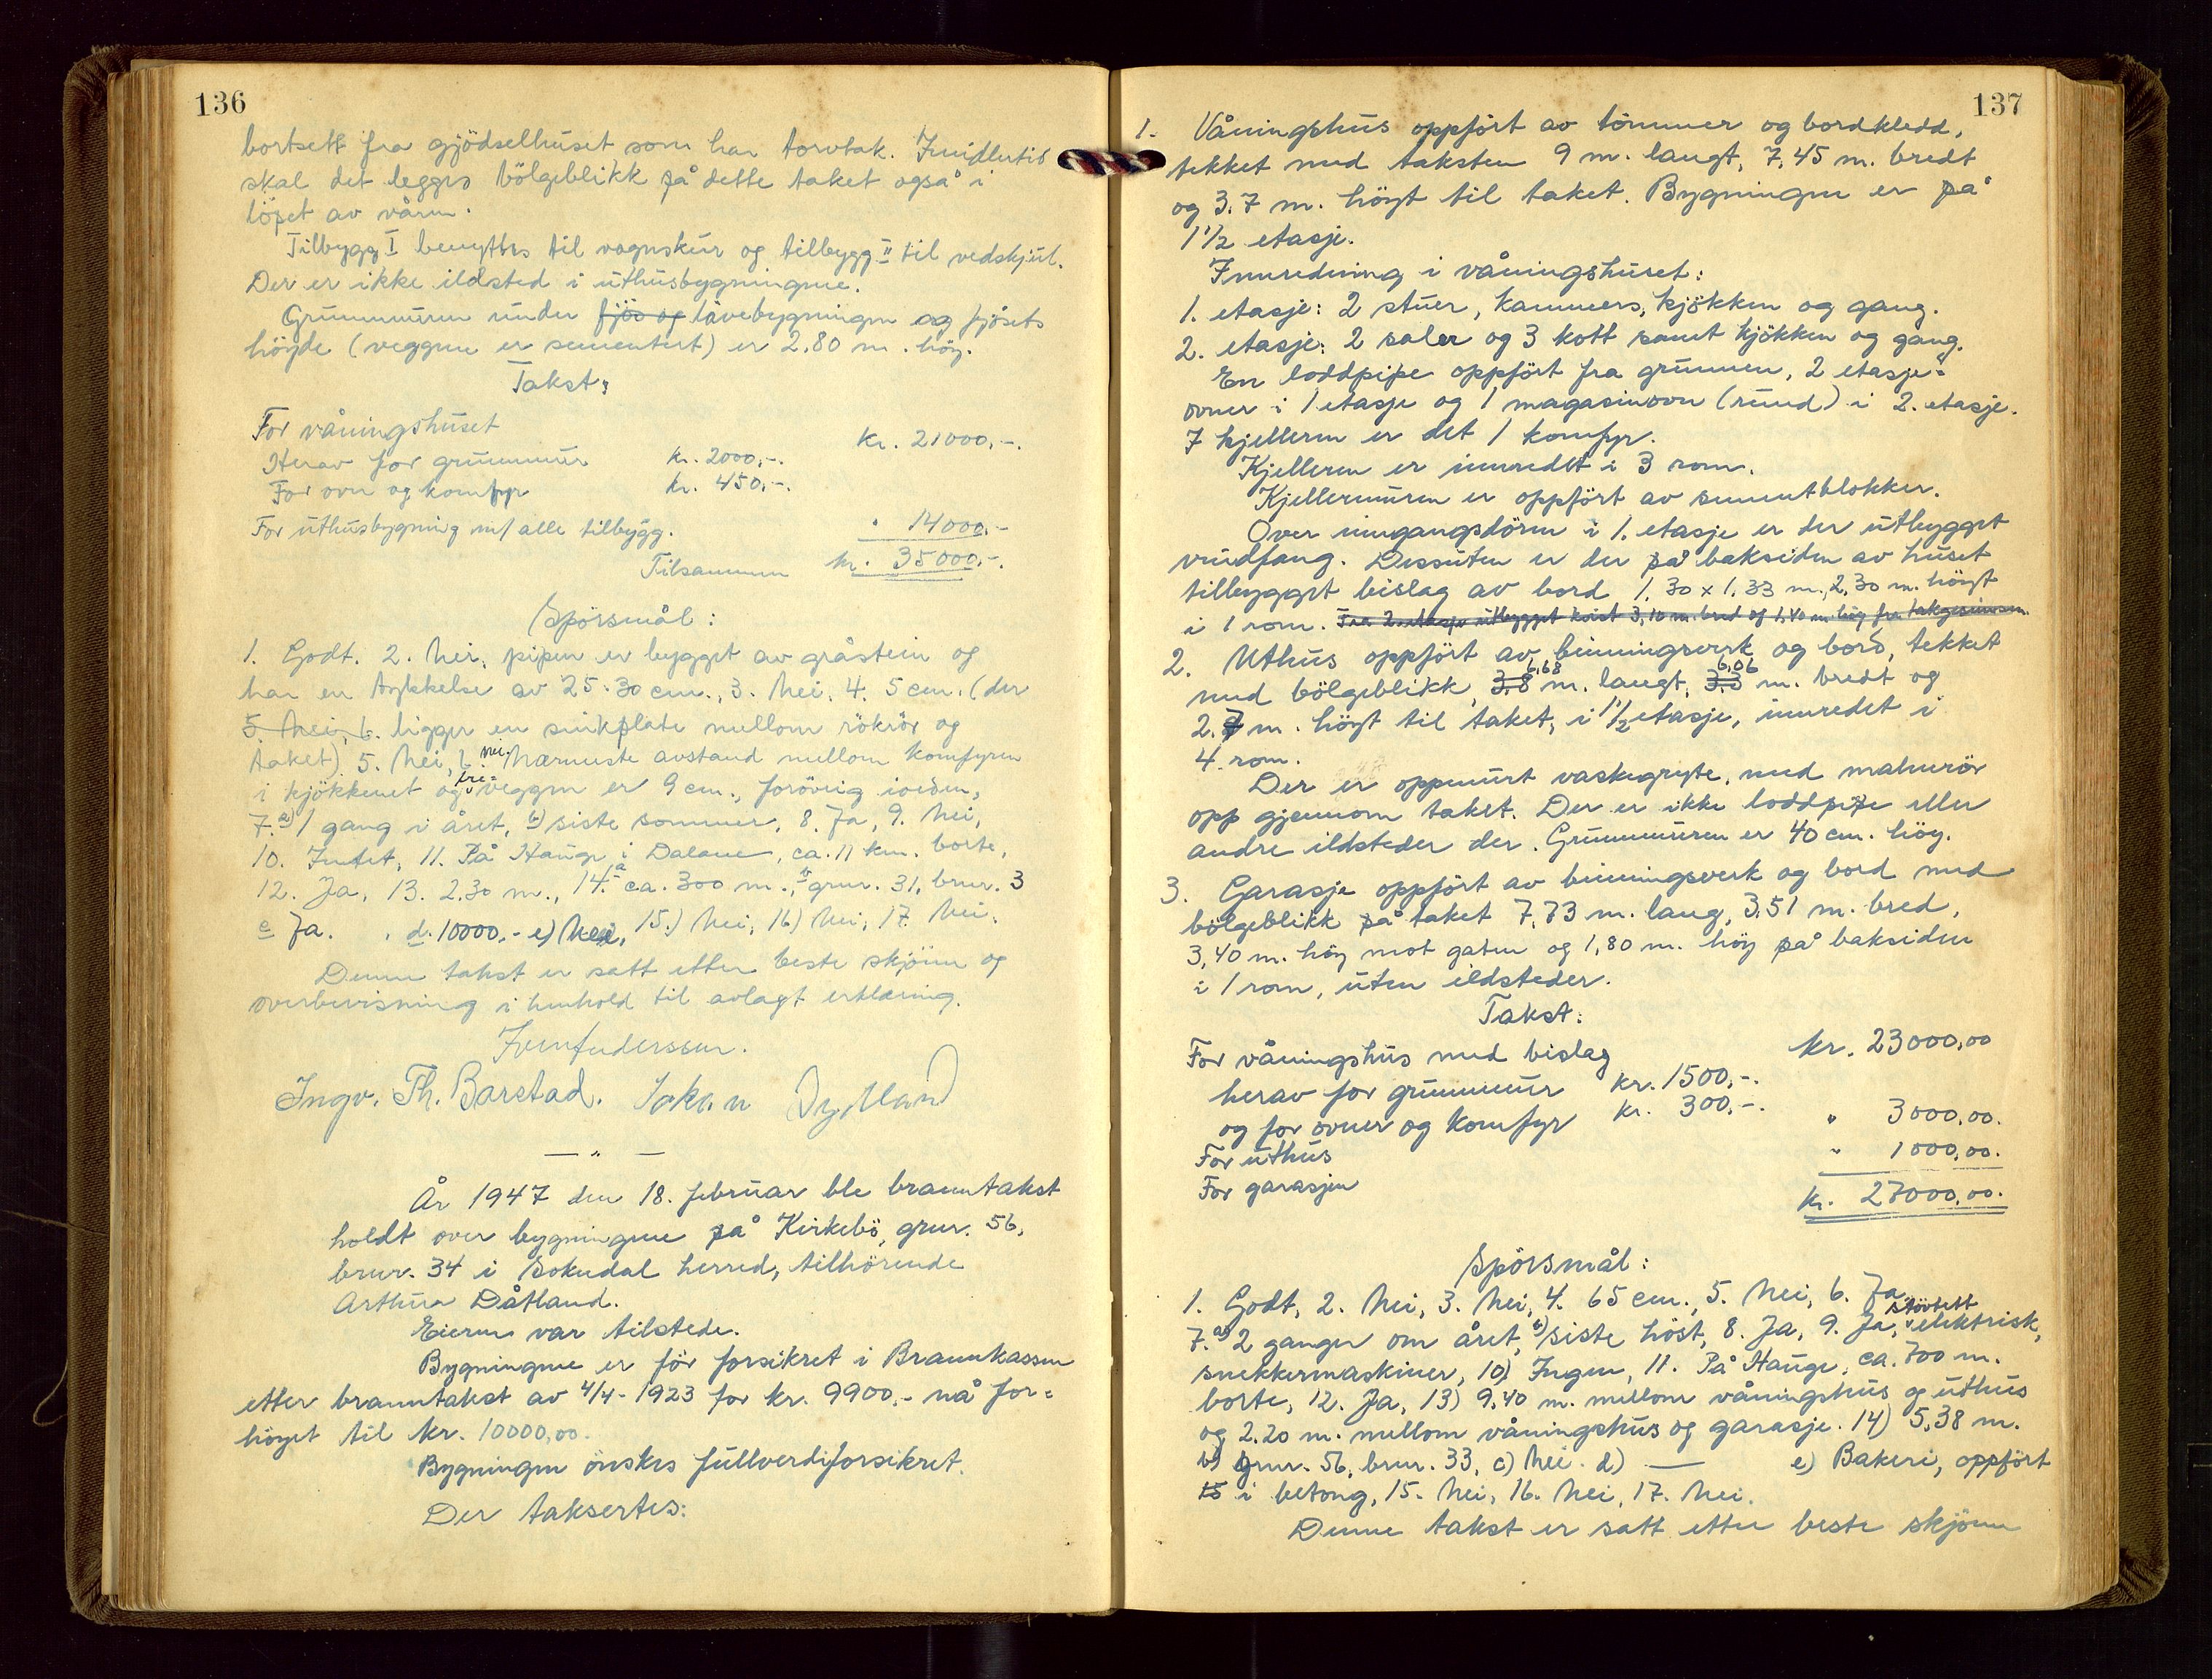 136
bortsett fra gjödselhuset som har torvtak. Imidlertid
skal det legges bölgeblikk på dette taket også i
löpet av våren.
Tilbygg I benyttes til vognskur og tilbygg II til vedskjul.
Der er ikke ildsted i uthusbygningene.
Grunnmuren under fjös og låvebygningen og fjösets
höyde (veggene er sementert) er 2.80 m. höy.
Takst:
For våningshuset kr. 21000,-.
Herav for grunnmur kr. 2000,-.
For ovn og komfyr kr. 450,-.
For uthusbygning m/ alle tilbygg. " 14000,-
Tilsammen kr. 35000,-.
Spörsmål:
1. Godt. 2. Nei, pipen er bygget av gråstein og
har en tykkelse av 25-30 cm., 3. Nei, 4. 5 cm. (der
5. Nei, 6. ligger en sinkplate mellom rökrör og
taket). 5. Nei, 6. nei. Nærmeste avstand mellom komfyren
i kjökkenet og tre-veggen er 9 cm., forövrig iorden,
7. a) 1 gang i året, b) siste sommer, 8. Ja, 9. Nei,
10. Intet, 11. På Hauge i Dalane, ca. 11 km. borte,
12. Ja, 13. 2.30 m., 14. a ca. 300 m., b gnr. 31, brnr. 3
c Ja. d. 10000,- e) Nei, 15.) Nei, 16) Nei, 17. Nei.
Denne takst er satt etter beste skjönn og
overbevisning i henhold til avlagt erklæring.
Ingv. Th. Barstad. Johan Dydland
— " —
År 1947 den 18. februar ble branntakst
holdt over bygningene på Kirkebö, gnr. 56,
brnr. 34 i Sokndal herred, tilhörende
Arthur Dåtland.
Eieren var tilstede.
Bygningene er för forsikret i Brannkassen
etter branntakst av 4/4-1923 for kr. 9900,- nå for=
höyet til kr. 10000,00.
Bygningen önskes fullverdiforsikret.
Der taksertes:
137
1. Våningshus oppfört av tömmer og bordkledd,
tekket med taksten 9 m. langt, 7,45 m. bredt
og 3.7 m. höyt til taket. Bygningen er på
1 1/2 etasje.
Innredning i våningshuset:
1. etasje: 2 stuer, kammers, kjökken og gang.
2. etasje: 2 saler og 3 kott samt kjökken og gang.
En loddpipe oppfört fra grunnen, 2 etasje=
ovner i 1 etasje og 1 magasinovn (rund) i 2. etasje.
I kjelleren er det 1 komfyr.
Kjelleren er innredet i 3 rom.
Kjellermuren er oppfört av sementblokker.
Over inngangsdören i 1. etasje er der utbygget
vindfang. Dessuten er der på baksiden av huset
tilbygget bislag av bord 1.30 x 1.33 m., 2.30 m. höyt
i 1 rom. Fra 2. etasje utbygget kvist 3,10 m. bred og 1,40 m. höy fra takgesimsen.
2. Uthus oppfört av binningsverk og bord, tekket
med bölgeblikk, 3.8 6,68 m. langt, 3.3 6,06 m. bredt og
2.7 m. höyt til taket, i 1 1/2 etasje, innredet i
4 rom.
Der er oppmurt vaskegryte, med malmrör
opp gjennom taket. Der er ikke loddpipe eller
andre ildsteder der. Grunnmuren er 40 cm. höy.
3. Garasje oppfört av binningsverk og bord med
bölgeblikk på taket 7,73 m. lang, 3,51 m. bred,
3,40 m. höy mot gaten og 1,80 m. höy på baksiden
i 1 rom, uten ildsteder.
Takst:
For våningshus med bislag kr. 23000,00
herav for grunnmur kr. 1500,-.
og for ovner og komfyr kr. 300,-.
For uthus " 3000,00.
For garasjen " 1000,00.
kr. 27000,00.
Spörsmål:
1. Godt, 2. Nei, 3. Nei, 4. 65 cm., 5. Nei, 6. Ja,
7. a) 2 ganger om året, b) siste höst, 8. Ja, 9. Ja, stövtett elektrisk,
snekkermaskiner, 10) Ingen, 11. På Hauge, ca. 700 m.
borte, 12. Ja, 13) 9,40 m. mellom våningshus og uthus
og 2.20 m. mellom våningshus og garasje. 14) 5,38 m.
b) gnr. 56, brnr. 33, c) Nei. d) — e) Bakeri, oppfört
15 i betong, 15. Nei, 16. Nei, 17. Nei.
Denne takst er satt etter beste skjönn